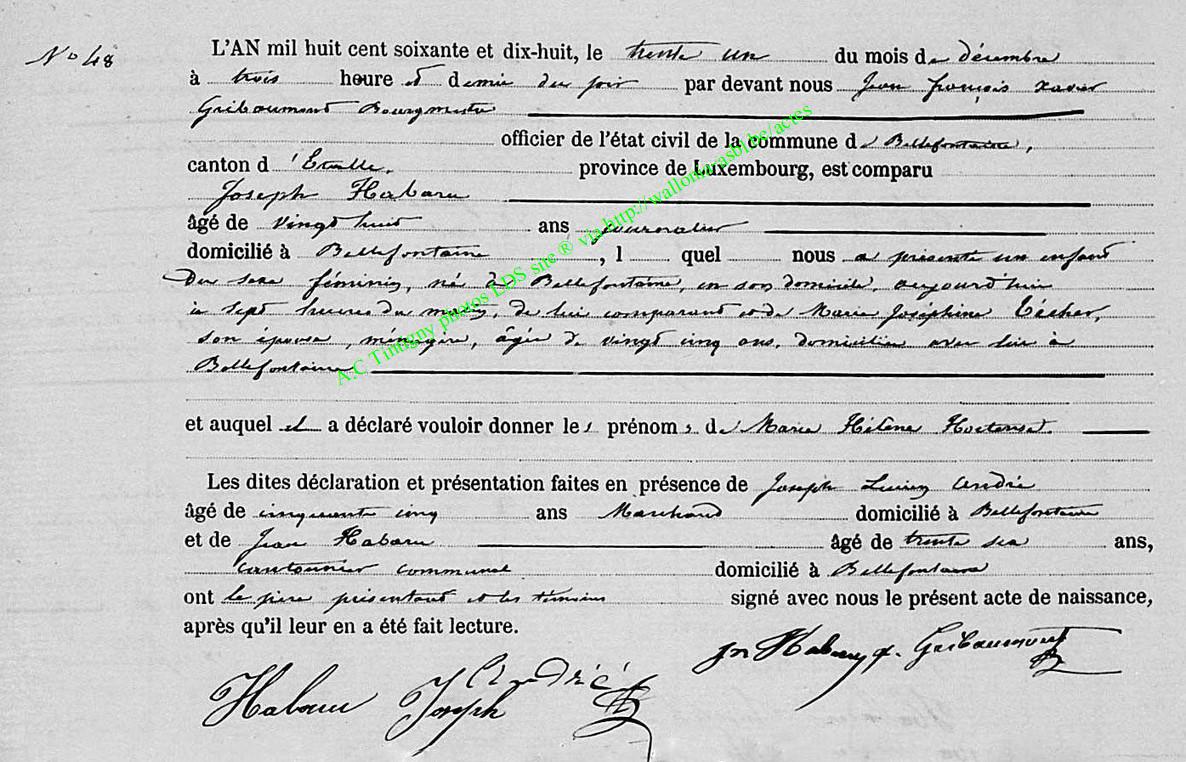 N° 48
L'AN mil huit cent soixante et dix-huit, le trente un du mois de décembre
à trois heure et demie du soir par devant nous Jean françois xavier
Gribaumont Bourgmestre
officier de l'état civil de la commune d Bellefontaine,
canton d'Etalle, province de Luxembourg, est comparu
Joseph Habaru
âgé de vingt huit ans journalier
domicilié à Bellefontaine, l quel nous a présenté un enfant
du sexe féminin, né à Bellefontaine, en son domicile, aujourd'hui
à sept heures du matin, de lui comparant et de Marie Joséphine
son épouse, ménagère, âgée de vingt cinq ans, domiciliée avec lui à
Bellefontaine
et auquel il a déclaré vouloir donner les prénoms de Marie Hélène Hortense.
Les dites déclaration et présentation faites en présence de Joseph Lucien André
âgé de cinquante cinq ans Marchand domicilié à Bellefontaine
et de Jean Habaru âgé de trente six ans,
cantonnier communal domicilié à Bellefontaine
ont le père présentant et les témoins signé avec nous le présent acte de naissance,
après qu'il leur en a été fait lecture.
Jn Habaru f. Gribaumont
André
Habaru Joseph
A.C Tintigny photos LDS site ® via http://wallonia.asbl.be/actes